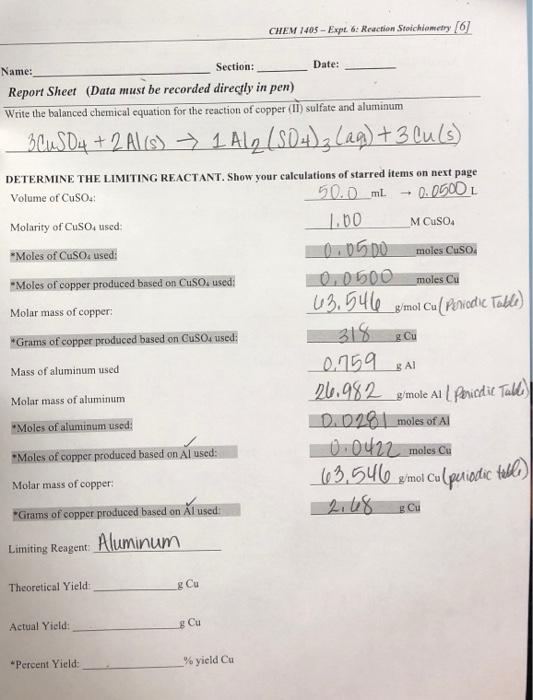 CHEM 1405 – Expt. 6: Reaction Stoichiometry [6]
Name: Section: Date:
Report Sheet (Data must be recorded directly in pen)
Write the balanced chemical equation for the reaction of copper (II) sulfate and aluminum
3CuSO4 + 2Al(s) → 1 Al2(SO4)3(aq) + 3Cu(s)
DETERMINE THE LIMITING REACTANT. Show your calculations of starred items on next page
Volume of CuSO4: 50.0 mL → 0.0500 L
Molarity of CuSO4 used: 1.00 M CuSO4
*Moles of CuSO4 used: 0.0500 moles CuSO4
*Moles of copper produced based on CuSO4 used: 0.0500 moles Cu
Molar mass of copper: 63.546 g/mol Cu (Periodic Table)
*Grams of copper produced based on CuSO4 used: 318 g Cu
Mass of aluminum used 0.759 g Al
Molar mass of aluminum 26.982 g/mole Al (Periodic Table)
*Moles of aluminum used: 0.0281 moles of Al
*Moles of copper produced based on Al used: 0.0422 moles Cu
Molar mass of copper: 63.546 g/mol Cu (periodic table)
*Grams of copper produced based on Al used: 2.68 g Cu
Limiting Reagent: Aluminum
Theoretical Yield: g Cu
Actual Yield: g Cu
*Percent Yield: % yield Cu